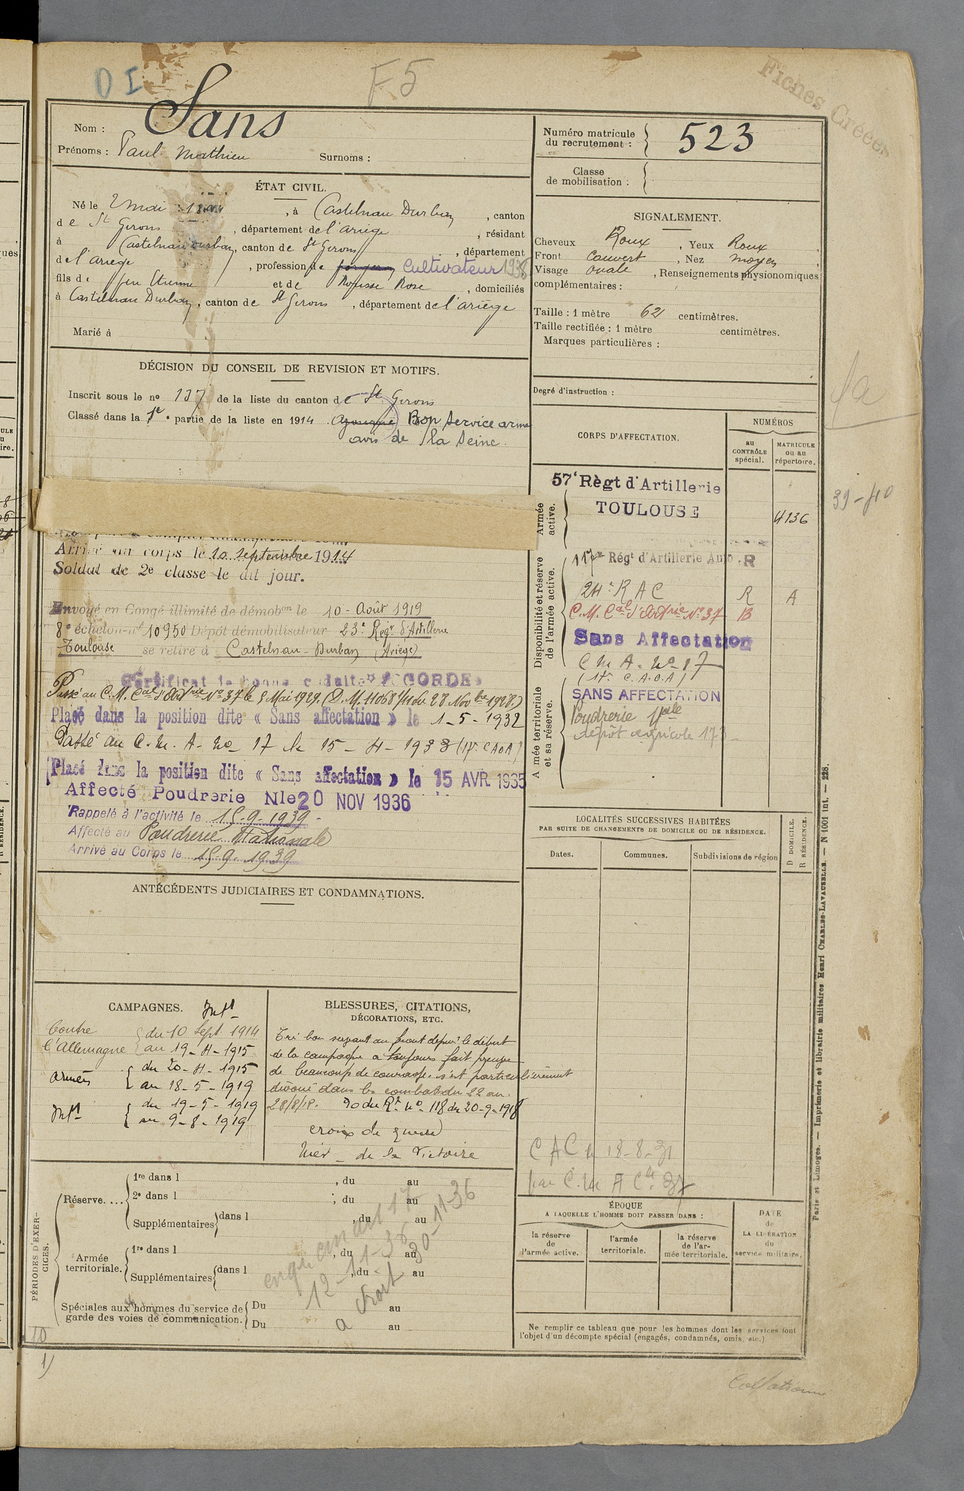 O I
F 5
Fiches Créées
Nom : Sans
Prénoms : Paul Mathieu Surnoms :
Numéro matricule du recrutement : 523
Classe de mobilisation :
ÉTAT CIVIL.
Né le 2 mai , à Castelnau Durban , canton
de St Girons , département de l'ariège , résidant
à Castelnau Durban, canton de St Girons , département
de l'ariège , profession de Cultivateur 1936
fils de feu Etienne et de Rose , domiciliés
à Castelnau Durban , canton de St Girons , département de l'ariège
Marié à
SIGNALEMENT.
Cheveux Roux , Yeux Roux
Front couvert , Nez moyen
Visage ovale , Renseignements physionomiques
complémentaires :
Taille : 1 mètre 62 centimètres.
Taille rectifiée : 1 mètre centimètres.
Marques particulières :
DÉCISION DU CONSEIL DE REVISION ET MOTIFS.
Inscrit sous le no 137 de la liste du canton de St Girons
Classé dans la 1re partie de la liste en 1914 Bon service armé
avis de la Seine.
Degré d'instruction :
CORPS D'AFFECTATION.
NUMÉROS
au CONTRÔLE spécial.
MATRICULE ou au répertoire.
Armée active.
57e Règt d'Artillerie
TOULOUSE
4136
Disponibilité et réserve de l'armée active.
117e Régt d'Artillerie Auto R
24e R A C R A
C. M. Cal d'Artrie No 37 B
Sans Affectation
C. M. A. No 17
(17e C.A.O.A)
Armée territoriale et sa réserve.
SANS AFFECTATION
Poudrerie Nale
dépôt agricole 173
39-40
Arrivé au corps le 10 septembre 1914
Soldat de 2e classe le dit jour.
Envoyé en Congé illimité de démobon le 10 - Août 1919
8e échelon no 10950 Dépôt démobilisateur 23e Régt d'Artillerie
Toulouse se retire à Castelnau-Durban (Ariège)
Certificat de bonne conduite ACCORDÉ
Passé au C. M. Cal d'Artrie No 37 le 5 Mai 1929. (D. M. 11068 1/10 du 28 Novbre 1928)
Placé dans la position dite « Sans affectation » le 1-5-1932
Passé au C. M. A. No 17 le 15-4-1933 (17e CAOA)
Placé dans la position dite « Sans affectation » le 15 AVR. 1935
Affecté Poudrerie Nle 20 NOV 1936
Rappelé à l'activité le 15-9-1939
Affecté au Poudrerie Nationale
Arrivé au Corps le 15-9-1939
ANTÉCÉDENTS JUDICIAIRES ET CONDAMNATIONS.
LOCALITÉS SUCCESSIVES HABITÉES
PAR SUITE DE CHANGEMENTS DE DOMICILE OU DE RÉSIDENCE.
Dates.
Communes.
Subdivisions de région
D DOMICILE.
R RÉSIDENCE.
CAMPAGNES.
Intr
Contre l'Allemagne
du 10 Sept. 1914
au 19-4-1915
Armées
du 20-4-1915
au 18-5-1919
Intr
du 19-5-1919
au 9-8-1919
BLESSURES, CITATIONS,
DÉCORATIONS, ETC.
Très bon servant au front depuis le début
de la campagne a toujours fait preuve
de beaucoup de courage. s'est particulièrement
dévoué dans les combats du 22 au
28/8/18. O du Rt No 118 du 20-9-1918
croix de guerre
Méd. de la Victoire
C A C le 18-8-31
par C. M. A Cle 37
PÉRIODES D'EXERCICES.
Réserve....
1re dans l , du au
2e dans l , du au
Supplémentaires dans l , du au
Armée territoriale.
1re dans l , du au
Supplémentaires dans l , du au
Spéciales aux hommes du service de garde des voies de communication.
Du au
Du au
12-11-36
30-11-36
ÉPOQUE
A LAQUELLE L'HOMME DOIT PASSER DANS :
la réserve de l'armée active.
l'armée territoriale.
la réserve de l'armée territoriale.
DATE de LA LIBÉRATION du service militaire.
Ne remplir ce tableau que pour les hommes dont les services font
l'objet d'un décompte spécial (engagés, condamnés, omis, etc.)
Paris et Limoges. — Imprimerie et librairie militaires Henri CHARLES-LAVAUZELLE. — N 1001 int. — 228.